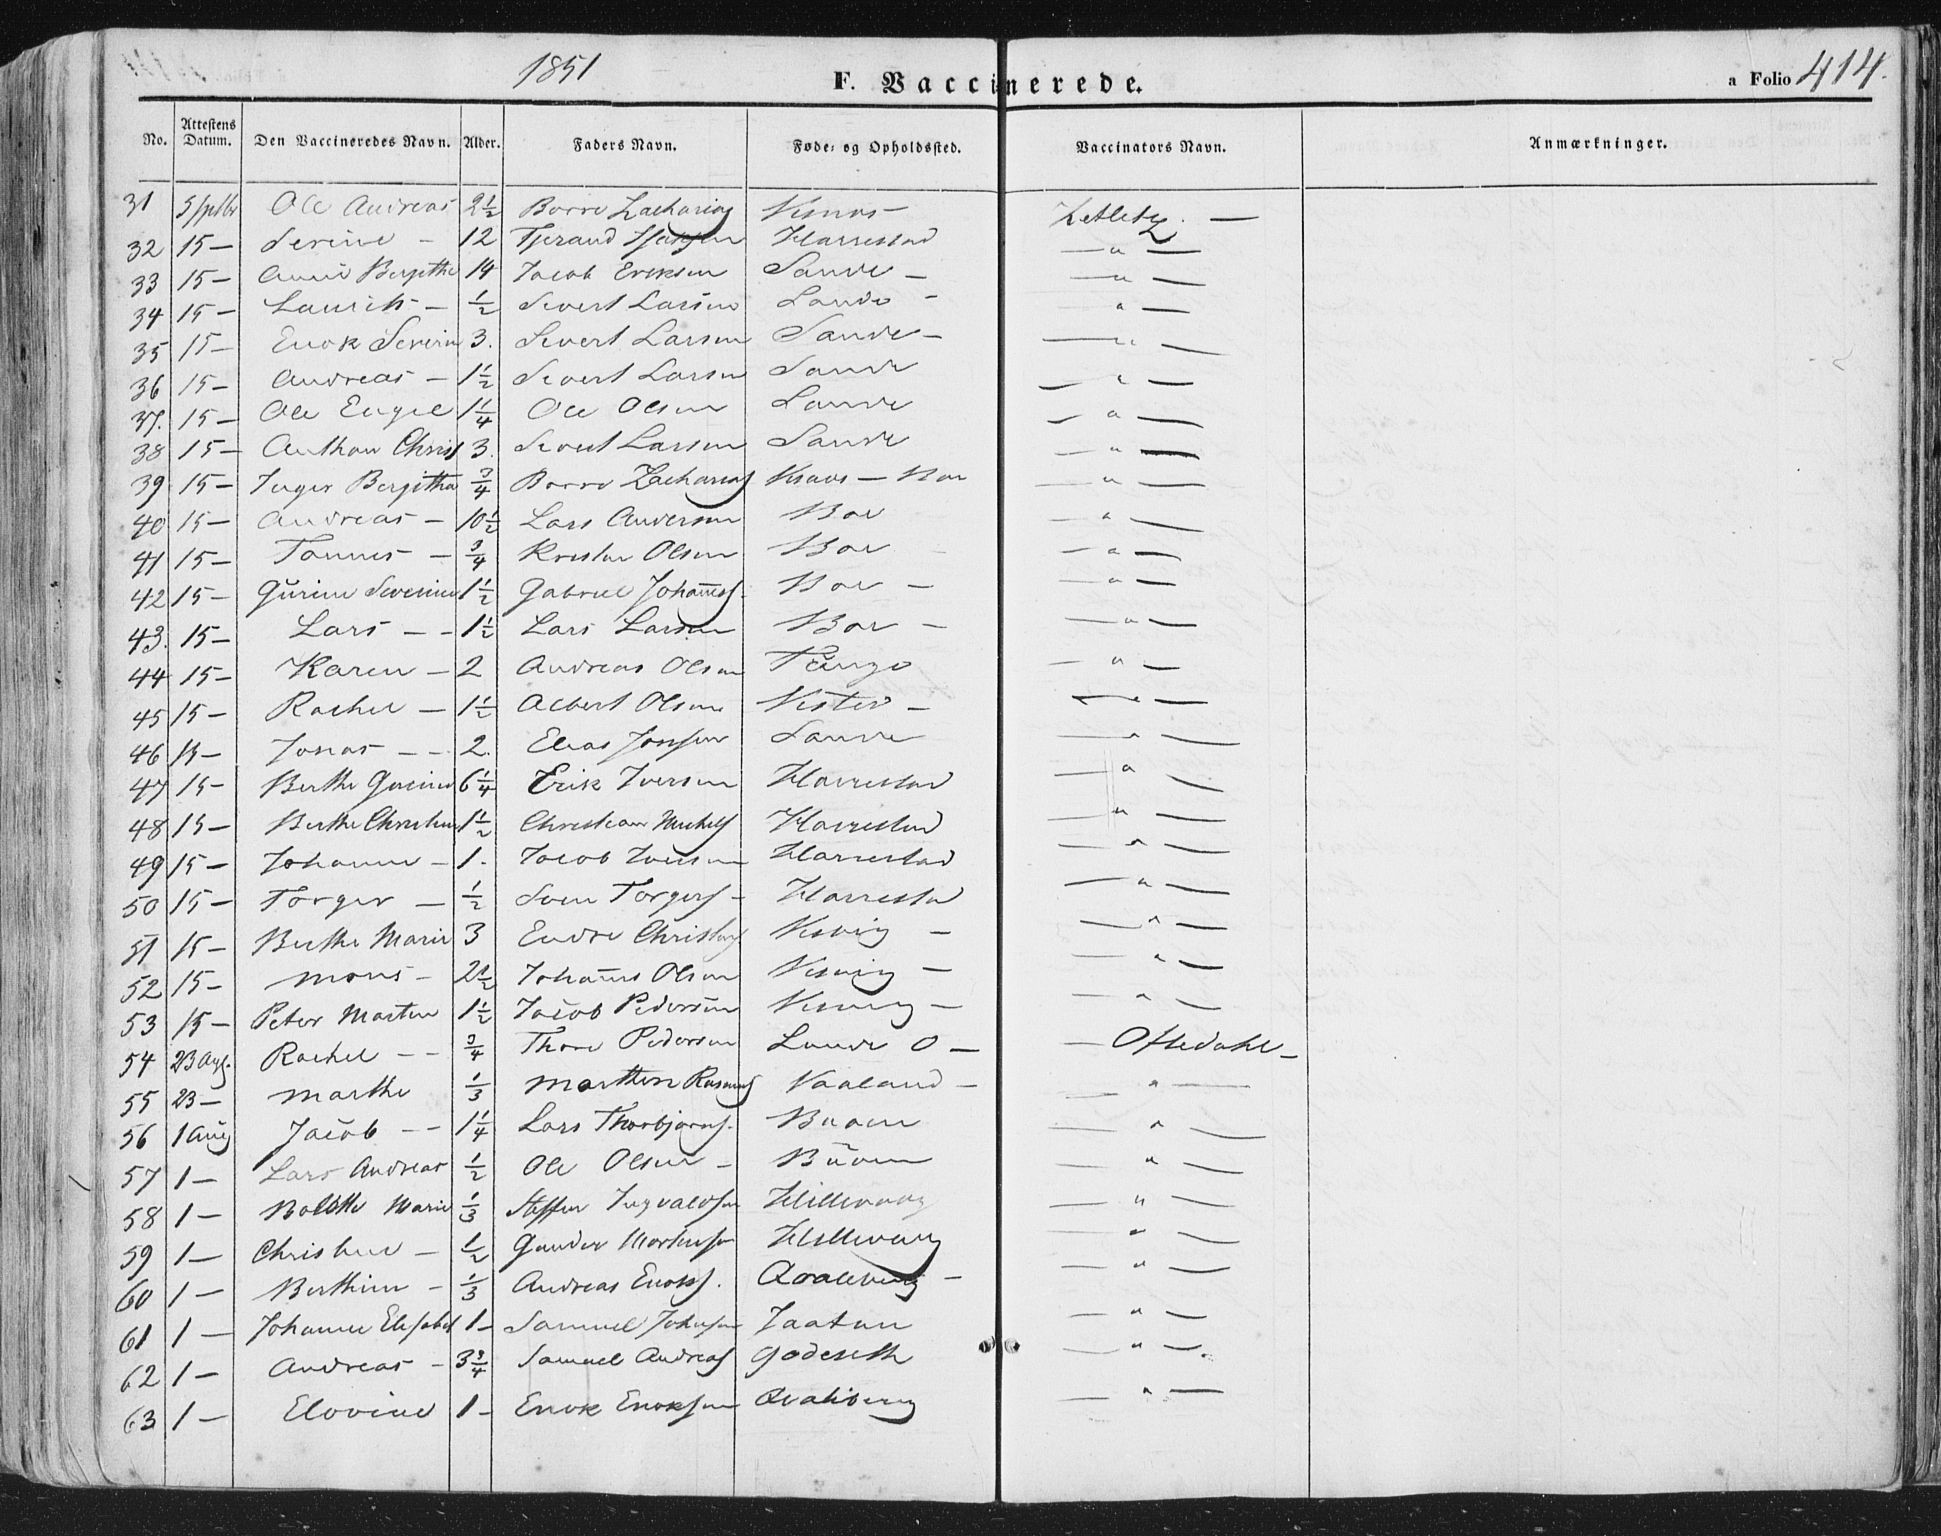 1851 F. Vaccinerede. a Folio 414.
No. Attestens Datum. Den Vaccineredes Navn. Alder. Faders Navn. Føde- og Opholdssted. Vaccinators Navn. Anmærkninger.
31 Ole Andreas 2½ Zacharias
32 15 — Serine — 12 Harrestad — " —
33 15 — Bergithe 14 Jacob Eriksen Sande — — " —
34 15 — Laurits — ½ Sivert Larsen Sande - " —
35 15 — Enok Severin 3. Sivert Larsen Sande — — " —
36 15 — Andreas — 1½ Sivert Larsen Sande — " —
37. 15 — Ole Engel 1¼ Ole Olsen Sande — " —
38 15 — Anthon Christ 3. Sivert Larsen Sande — " —
39 15 — Inger Bergitha ¾ Zacharias — " —
40 15 — Andreas — 10½ Lars Anderson Boe — " —
41 15 — Tønnes — ¾ Olsen Boe — " —
42 15 — Gurine Severine 1½ Gabriel Johannes. Boe — — " —
43. 15 — Lars — — 1½ Lars Larsen Boe — — " —
44 15 — Karen — 2 Andreas Olsen Tungo — " —
45 15 — Rachel — 1½ Albert Olsen — — " —
46 15 — Jonas — — 2. Elias Sande — " —
47 15 — Berthe Gurine 6¼ Erik Iversen Harrestad — " —
48 15 — Berthe 1½ Christian Harrestad — " —
49 15 — Johanne — 1. Jacob Iversen Harrestad — " —
50 15 — Torger — ½ Sven Torgers — Harrestad — " —
51 15 — Berthe Marie 3 Endre Visvig — — " —
52 15 — Mons — 2½ Johannes Olsen Visvig — — " —
53 15 — Peter Marten 1½ Jacob Pedersen Visvig — — " —
54 23 Aug. Rachel — — ¾ Thore Pedersen Sande O — — Oftedahl —
55 23 — Marthe ⅓ Marthen Rasmus Vaaland — " —
56 1 Aug Jacob — — 1¼ Lars Thorbjørns. Buoen — " —
57 1 — Lars Andreas ½ Ole Olsen — Buoen — " —
58 1 — Bolette Marie ⅓ Steffen Ingvaldsen Hillevaag — " —
59 1 — Christine — ½ Gunder Mortensen Hillevaag — " —
60 1 — Berthine — ⅓ Andreas Enoks. Qvaleberg — — " —
61 1 — Johanne Elisabet 1 — Samuel Johnsen Jaatun — " —
62 1 — Andreas — 3¾ Samuel Andreas Godeseth — " —
63 1 — Elovine 1 — Enok Enoksen Qvaleberg — " —